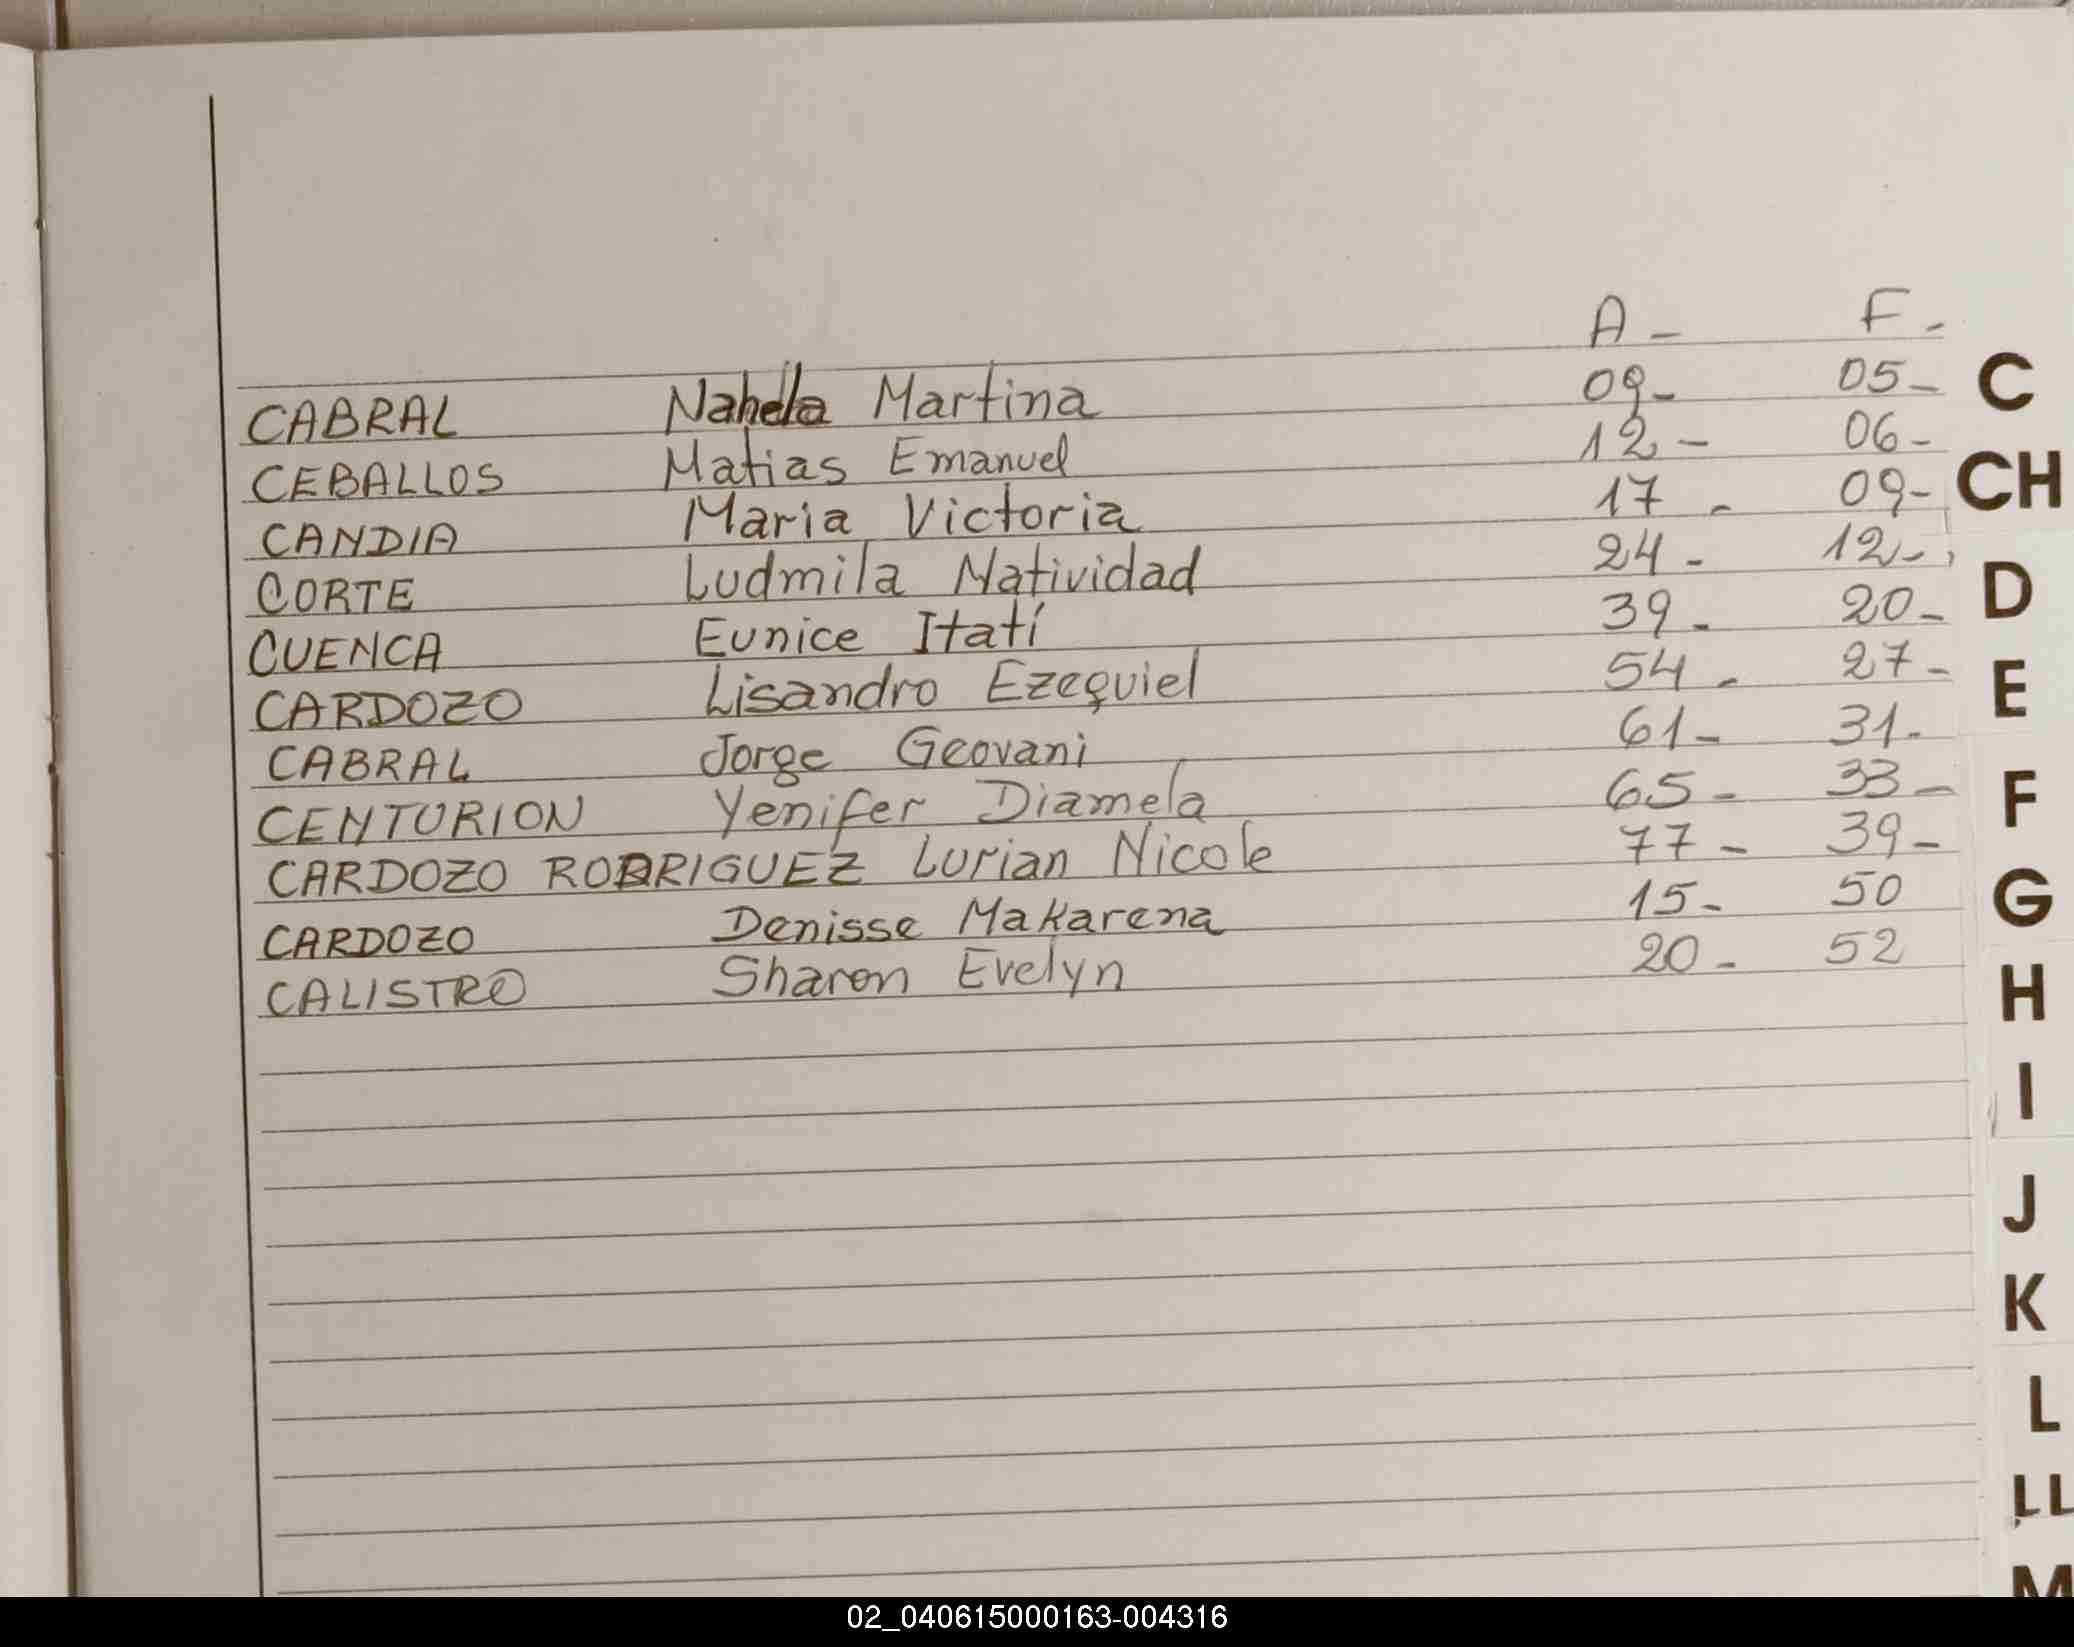 A - F -
CABRAL Nahela Martina 09- 05-
CEBALLOS Matias Emanuel 12- 06-
CANDIA Maria Victoria 17 - 09-
CORTE Ludmila Natividad 24- 12-
CUENCA Eunice Itatí 39- 20-
CARDOZO Lisandro Ezequiel 54- 27-
CABRAL Jorge Geovani 61- 31-
CENTURION Yenifer Diamela 65- 33-
CARDOZO RODRIGUEZ Lurian Nicole 77- 39-
CARDOZO Denisse Makarena 15- 50
CALISTRO Sharon Evelyn 20- 52
C
CH
D
E
F
G
H
I
J
K
L
LL
M
02_040615000163-004316